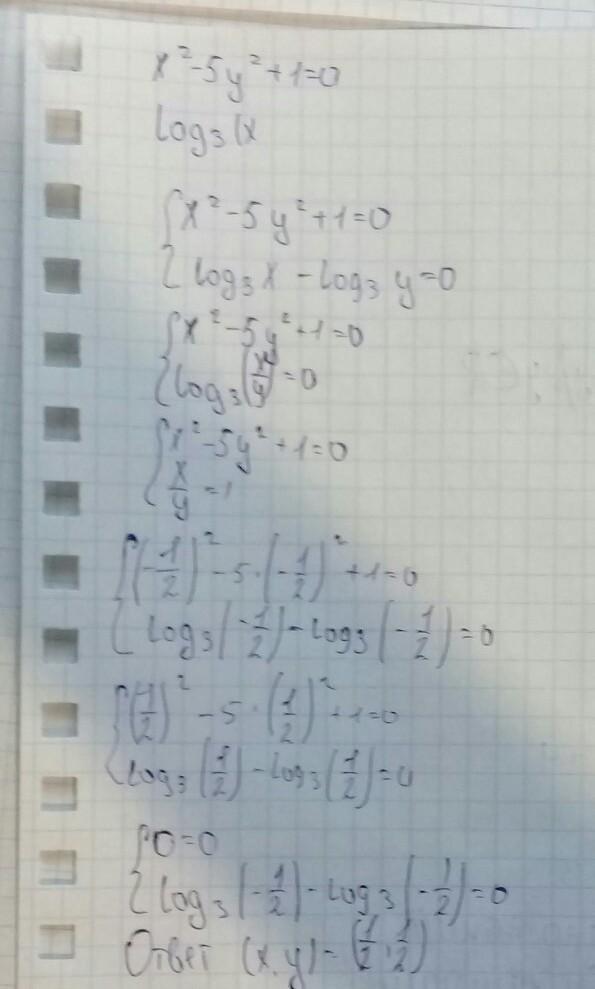 x²-5y²+1=0
log₃(x
{x²-5y²+1=0
{log₃x-log₃y=0
{x²-5y²+1=0
{log₃(x/y)=0
{x²-5y²+1=0
{x/y=1
{(-1/2)²-5·(-1/2)²+1=0
{log₃(-1/2)-log₃(-1/2)=0
{(1/2)²-5·(1/2)²+1=0
{log₃(1/2)-log₃(1/2)=0
{0=0
{log₃(-1/2)-log₃(-1/2)=0
Ответ (x,y)=(1/2;1/2)